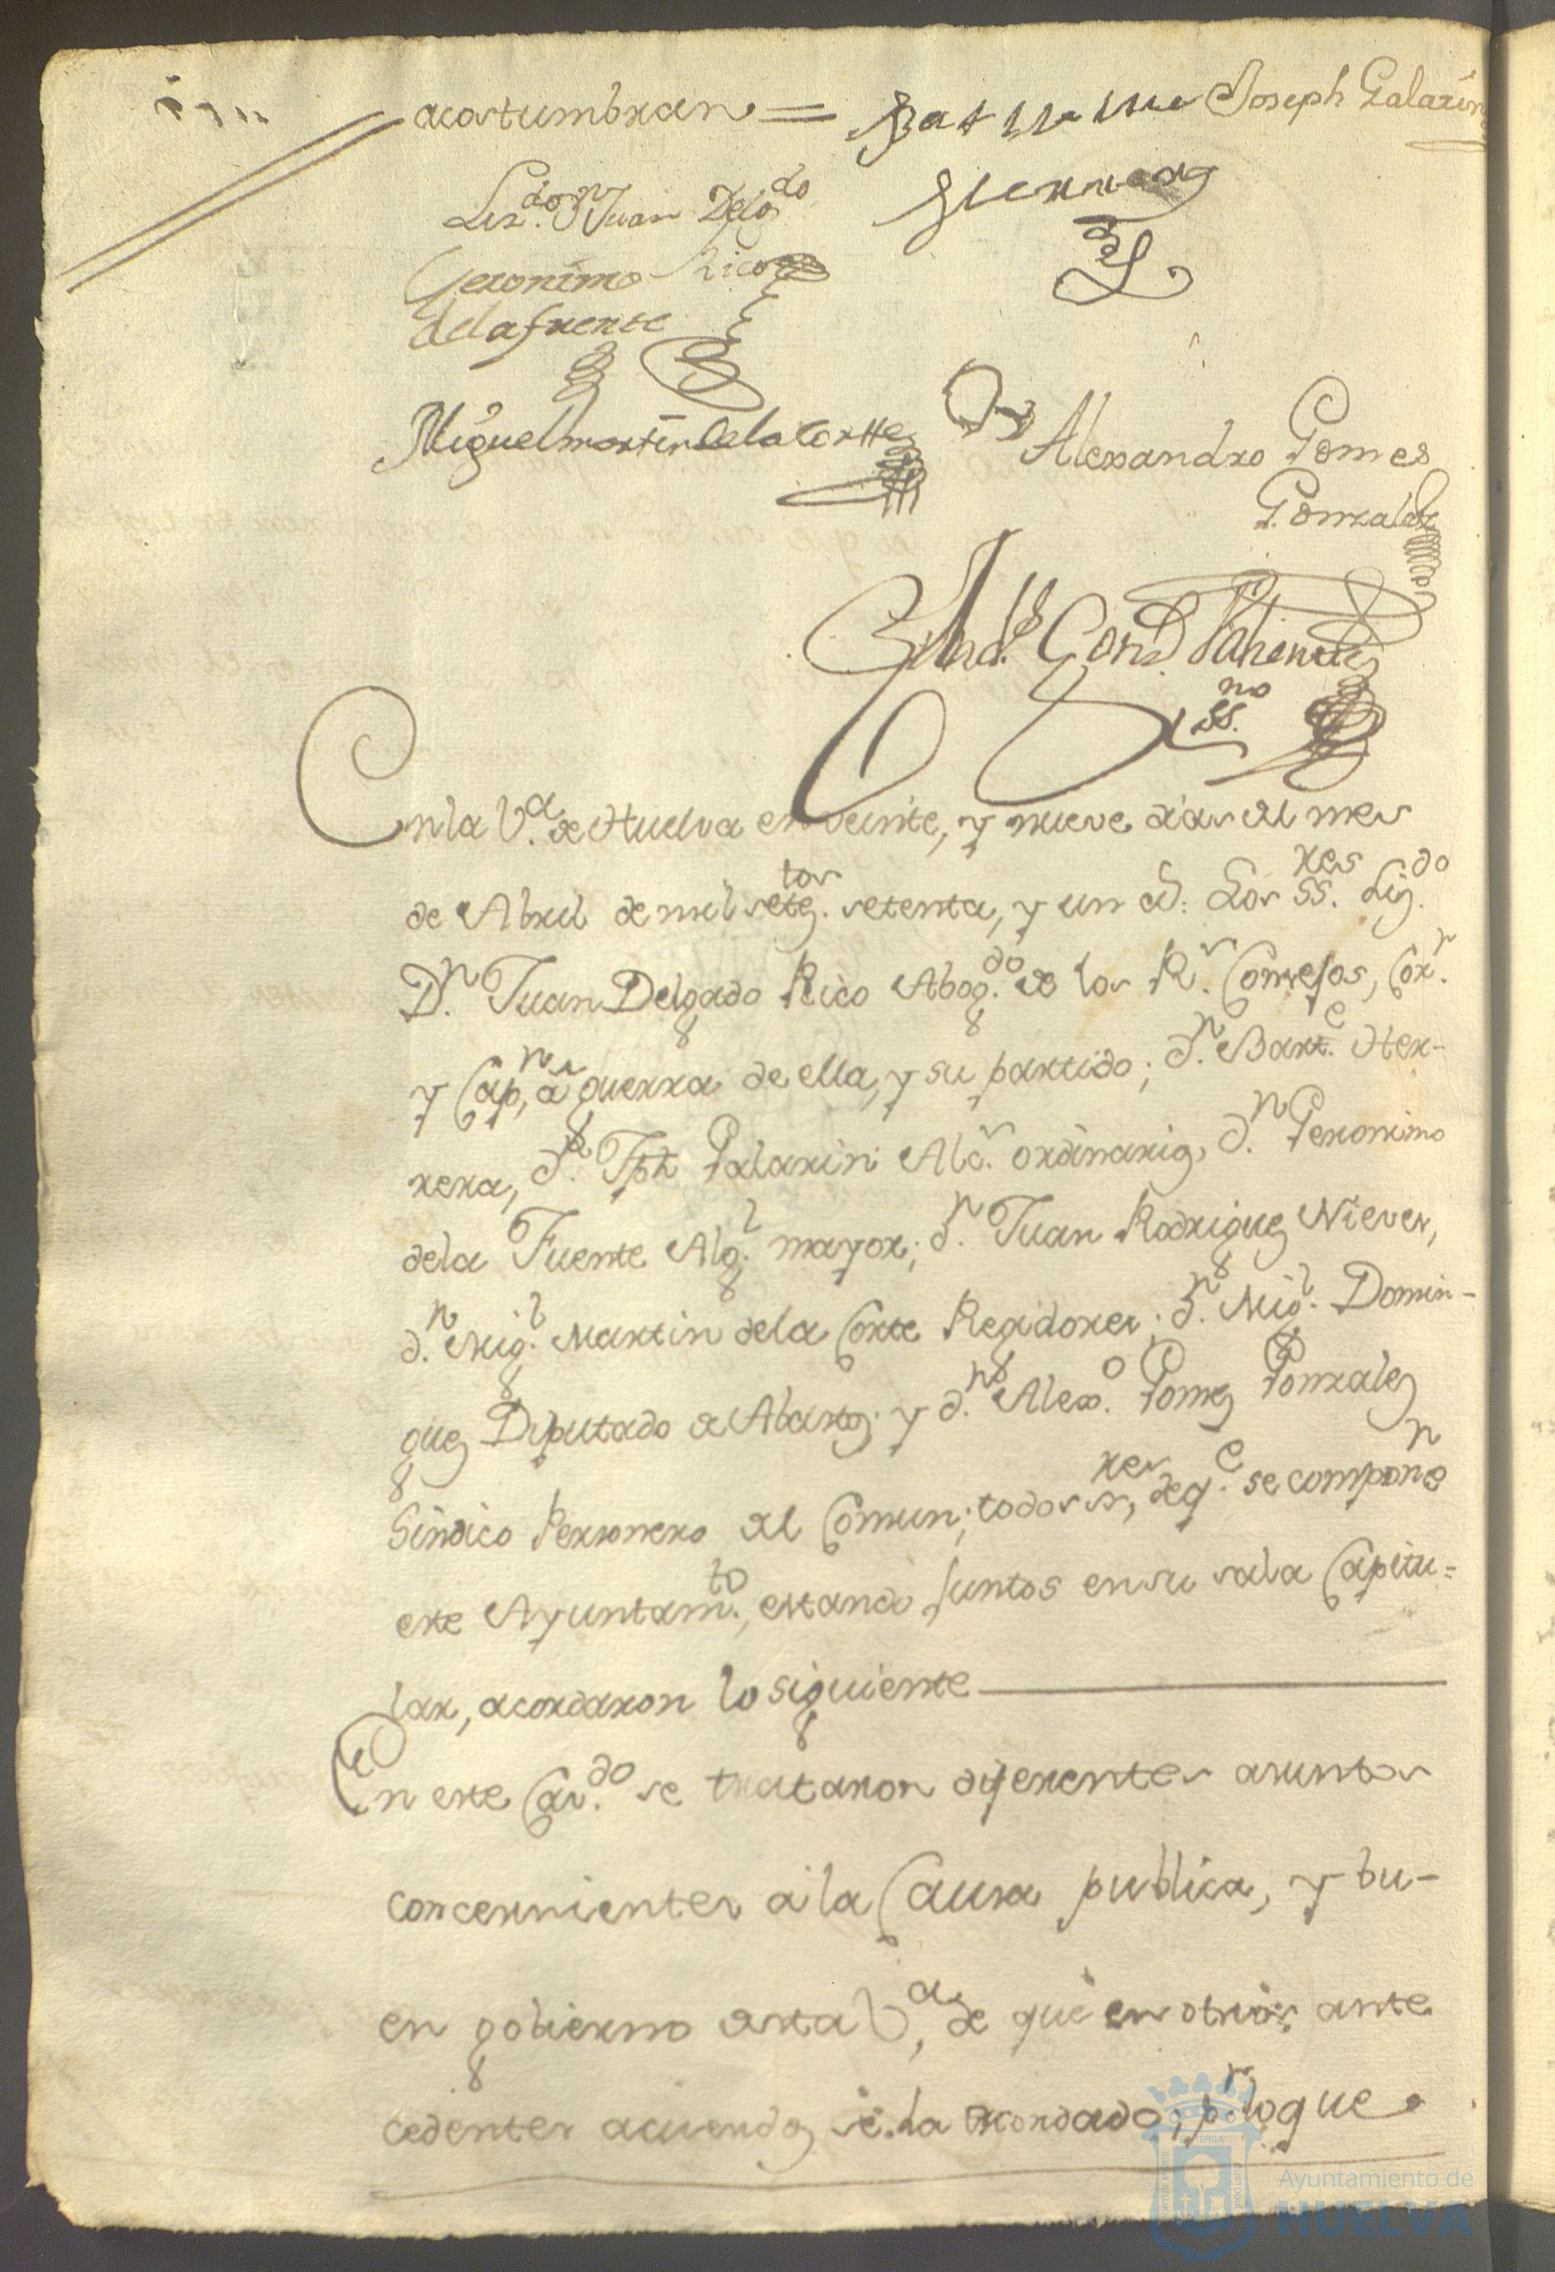 acostumbran =
Bartholome
Joseph Galarin
Herrera
Liz.do D.n Juan Delg.do
Rico
Geronimo
de la fuente
Miguel martin de la Cortte
Alexandro Gomes
Gonzalez
ss.no
En la V.a de Huelva en veinte, y nueve dias del mes
de Abril de mil setez.tos setenta, y un a.s Los SS.res Liz.do
D.n Juan Delgado Rico Abog.do de los R.s Consejos, Cor.r
y Cap.n a guerra de ella, y su partido; d.n Bart.e Her-
rera, d.n Jph Galarin Alc.s ordinarios, d.n Geronimo
de la Fuente Alg.l mayor; d.n Juan Rodriguez Nieves,
d.n Mig.l Martin de la Corte Regidores; d.n Mig.l Domin-
guez Diputado de Abastos; y d.n Alex.o Gomez Gonzalez
Sindico Personero del Comun; todos ss.res, de q.e se componen
este Ayuntam.to, estando juntos en su sala Capitu=
lar, acordaron lo siguiente
En este Cav.do se trataron diferentes asuntos
concernientes a la Causa publica, y bu-
en gobierno desta V.a, de que en otros ante
cedentes acuerdos se ha acordado; p.r lo que
Ayuntamiento de
HUELVA